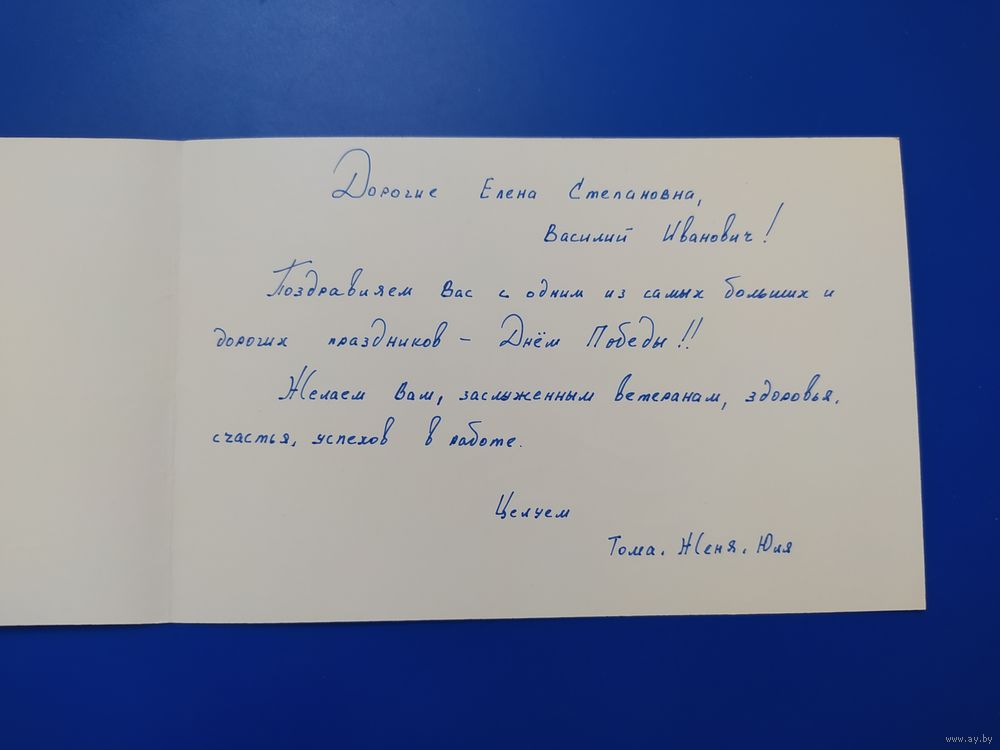 Дорогие Елена Степановна,
Василий Иванович!
Поздравляем Вас с одним из самых больших и
дорогих праздников - Днём Победы!!
Желаем Вам, заслуженным ветеранам, здоровья,
счастья, успехов в работе.
Целуем
Тома, Женя, Юля
www.ay.by